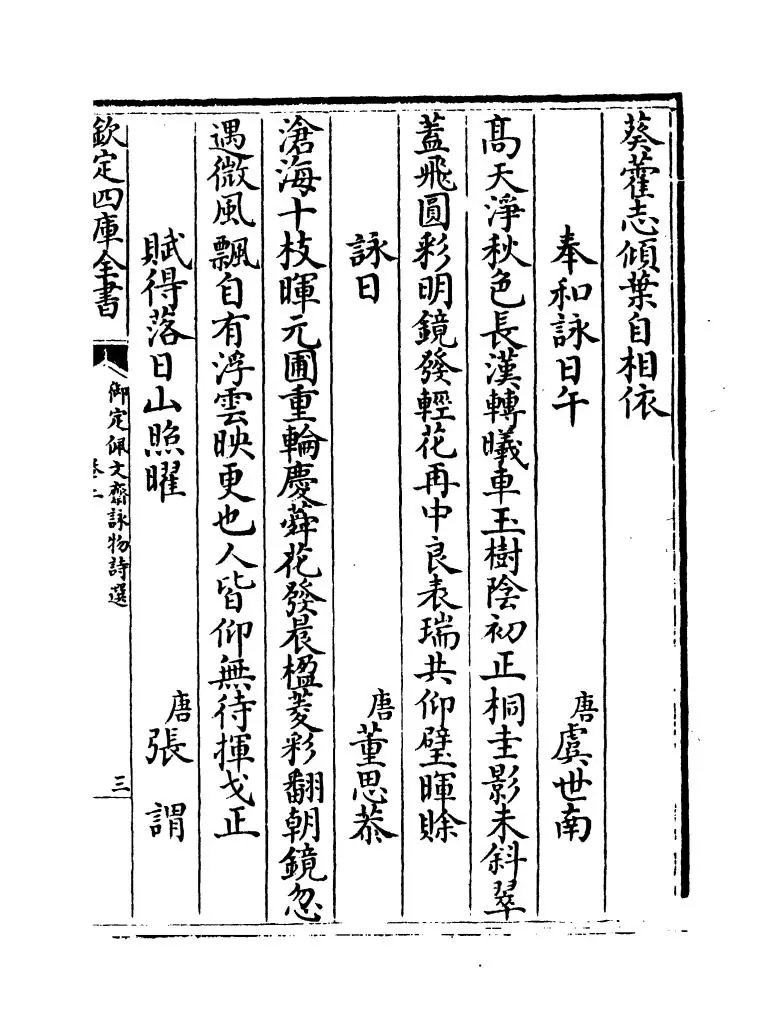 葵藿志傾葉自相依
奉和詠日午 唐虞世南
髙天淨秋色長漢轉曦車玉樹陰初正桐圭影未斜翠
蓋飛圓彩明鏡發輕花再中良表瑞共仰璧暉賖
詠日 唐董思恭
滄海十枝暉元圃重輪慶蕣花發晨楹菱彩翻朝鏡忽
遇微風飄自有浮雲映更也人皆仰無待揮戈正
賦得落日山照曜 唐張謂
欽定四庫全書 御定佩文齋詠物詩選 卷二 三